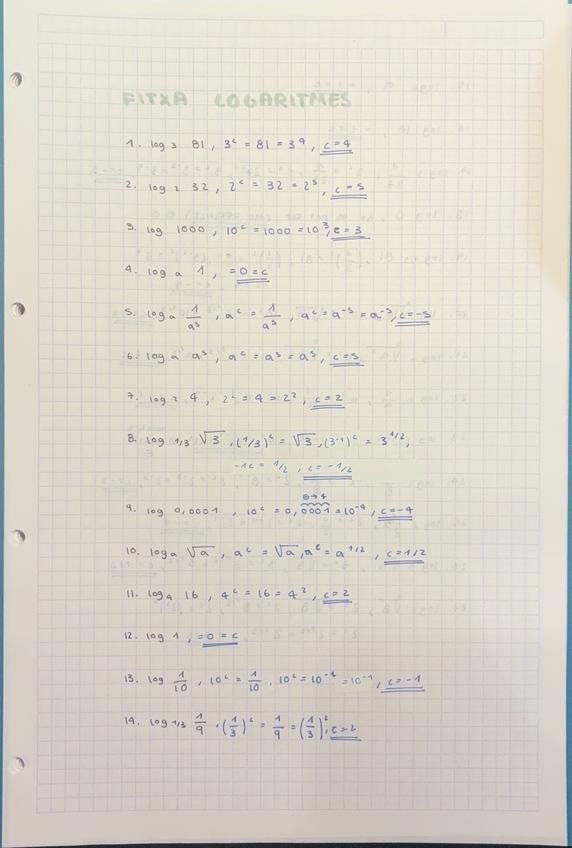 FITXA LOGARITMES
1. log 3 81, 3^c = 81 = 3^4, c=4
2. log 2 32, 2^c = 32 = 2^5, c=5
3. log 1000, 10^c = 1000 = 10^3, c=3
4. log a 1, =0=c
5. log a 1/a^5, a^c = 1/a^5, a^c = a^-5 = a^-5, c=-5
6. log a a^5, a^c = a^5 = a^5, c=5
7. log 2 4, 2^c = 4 = 2^2, c=2
8. log 1/3 √3, (1/3)^c = √3, (3^-1)^c = 3^1/2,
-1c = 1/2, c=-1/2
9. log 0,0001, 10^c = 0,0001 = 10^-4, c=-4
10. log a √a, a^c = √a, a^c = a^1/2, c=1/2
11. log 4 16, 4^c = 16 = 4^2, c=2
12. log 1, =0=c
13. log 1/10, 10^c = 1/10, 10^c = 10^-1 = 10^-1, c=-1
14. log 1/3 1/9, (1/3)^c = 1/9 = (1/3)^2, c=2